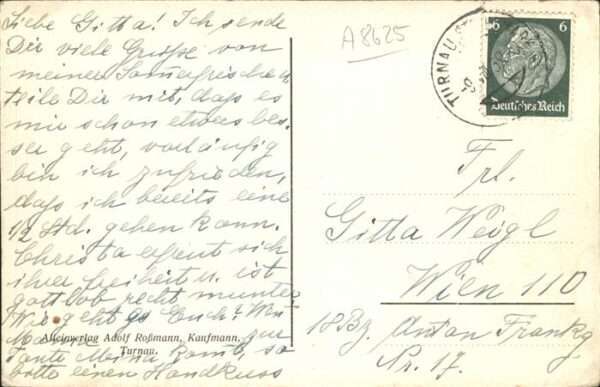 Liebe Gitta! Ich sende
Dir viele Grüße von
meiner Sommerfrische u.
teile Dir mit, daß es
mir schon etwas bes-
ser geht, vorläufig
bin ich zufrieden,
daß ich bereits eine
1/2 Std. gehen kann.
Christa erfreut sich
ihrer Freiheit u. ist
gottlob recht munter
Wie geht es Euch? Wenn
Mama zur
Tante kommt, so
bitte einen Handkuss
Alleinverlag Adolf Roßmann, Kaufmann,
Turnau.
A8625
TURNAU
6 6
Deutsches Reich
Frl.
Gitta Weigl
Wien 110
18 Bz. Anton Frankg.
Nr. 17.